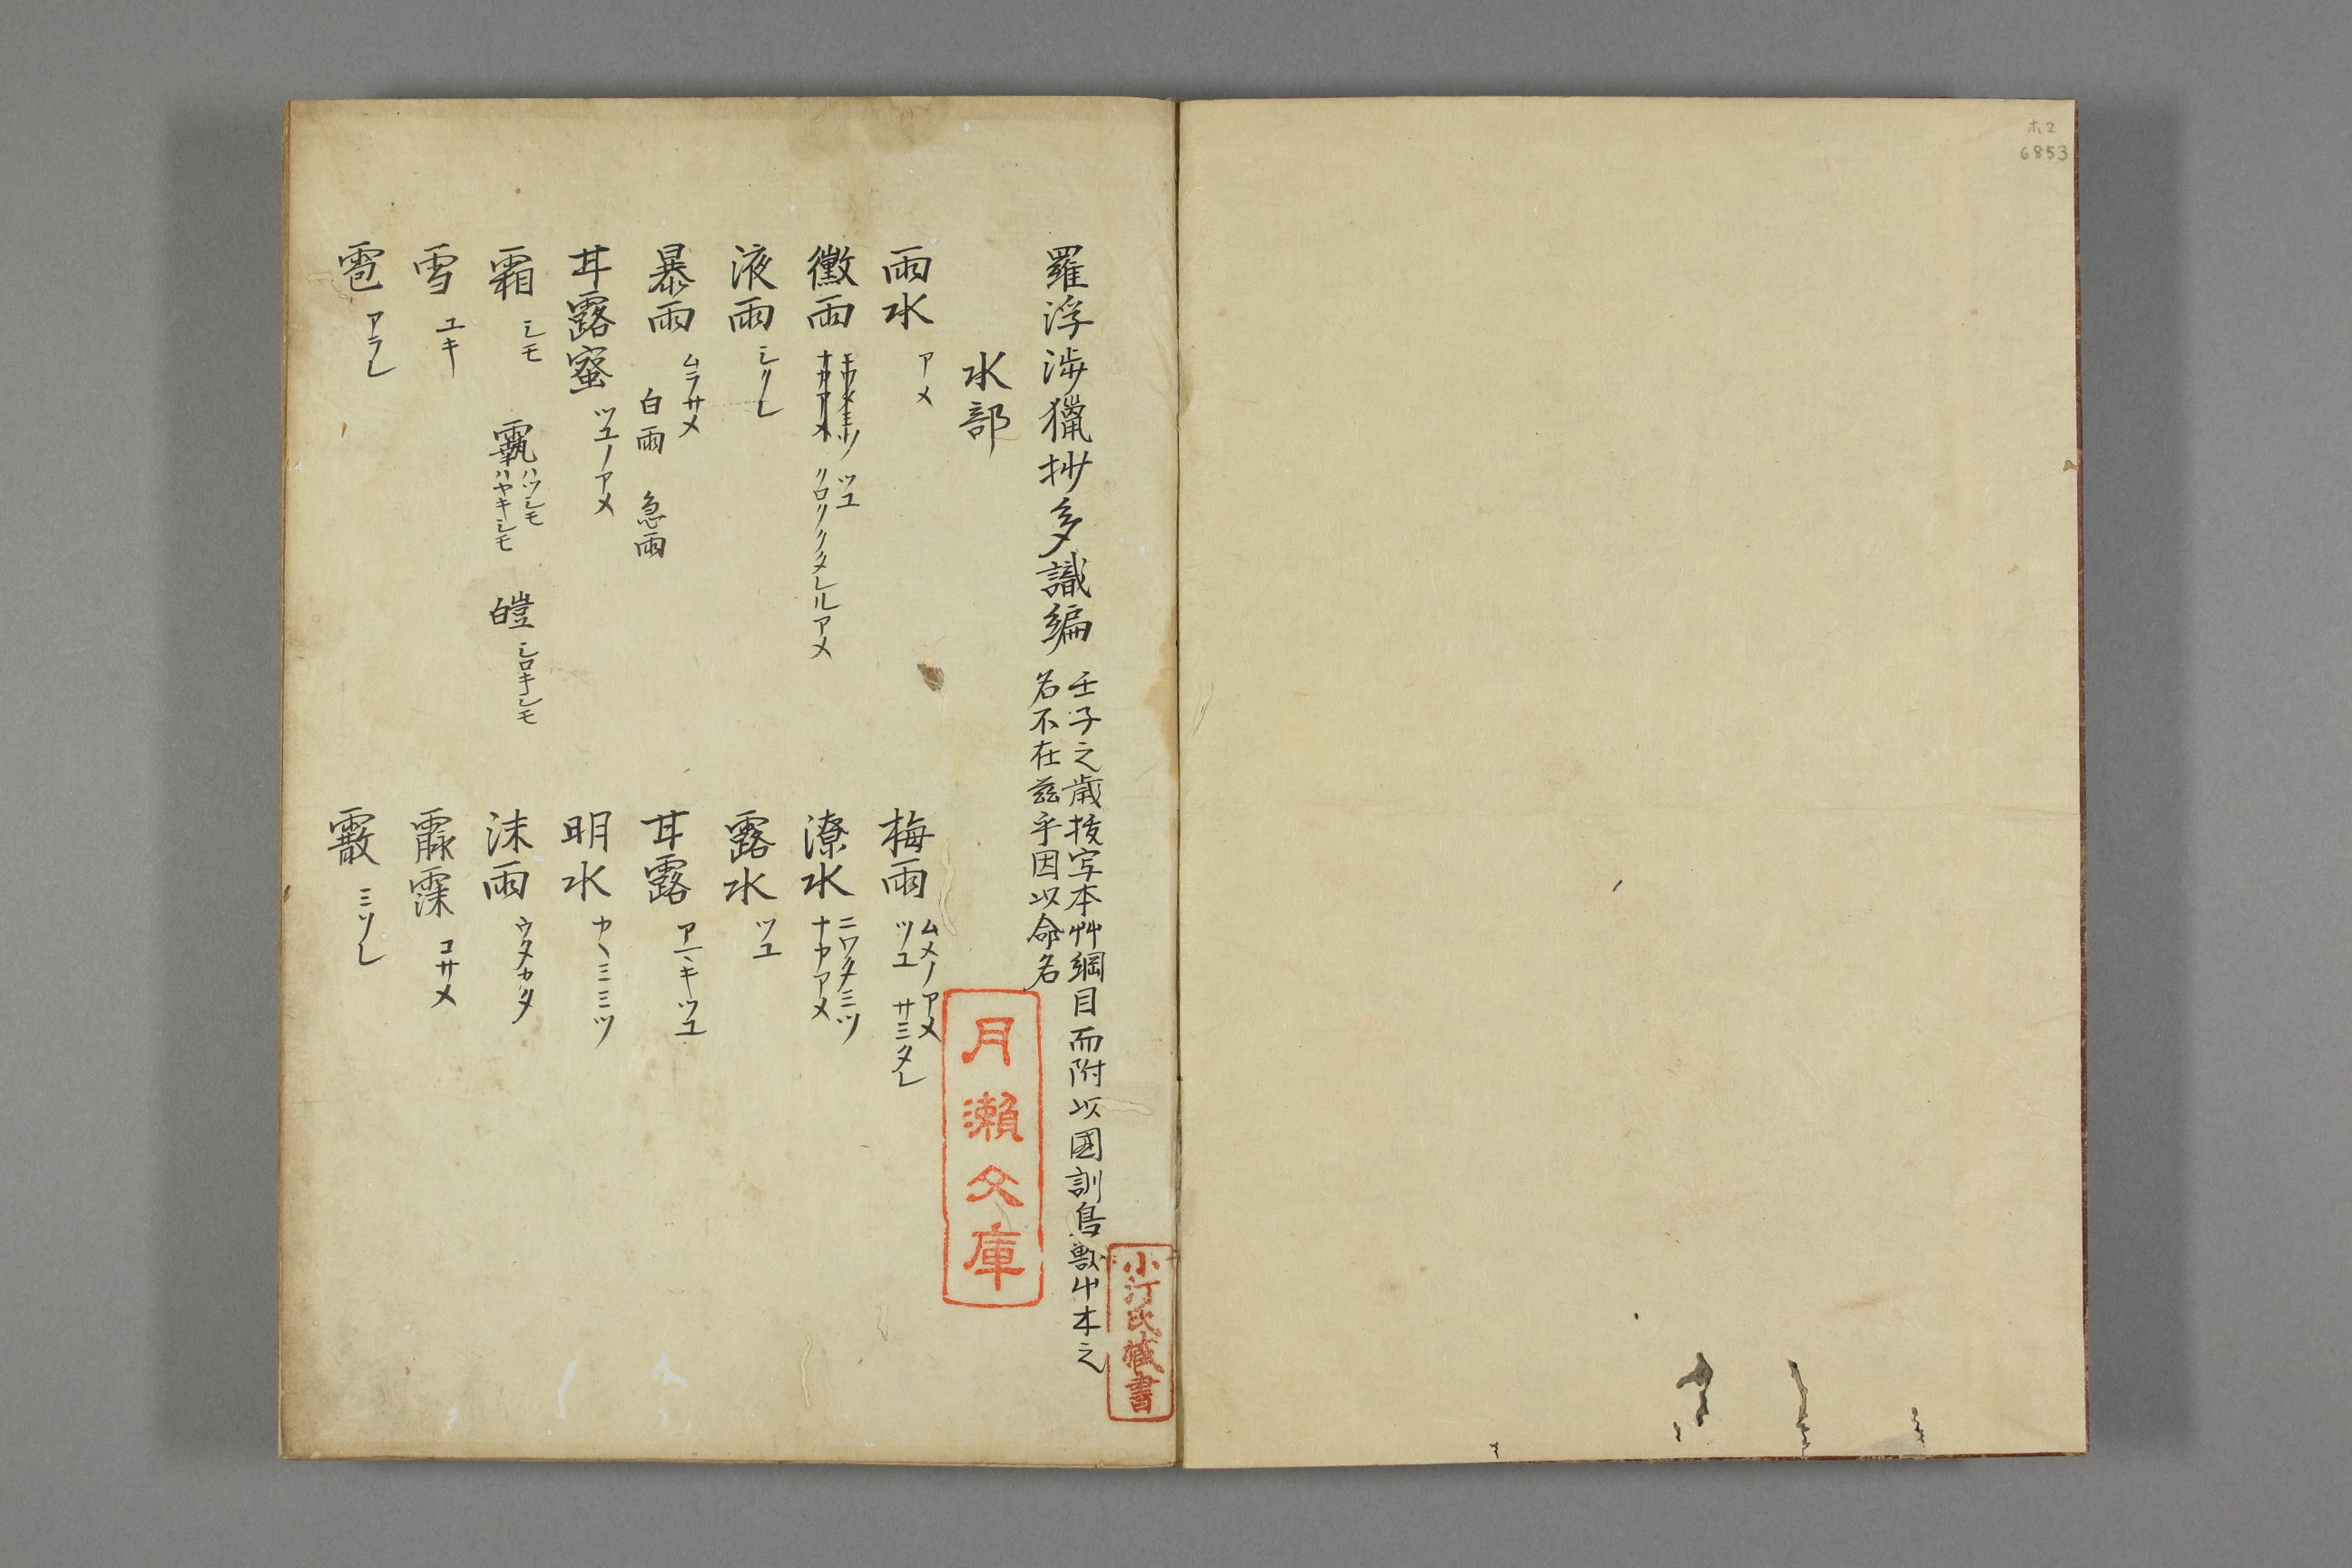 ホ2
6853
羅浮渉獵抄多識編
壬子之歳抜写本艸綱目而附以國訓鳥獣艸木之
名不在茲乎因以命名
水部
雨水 アメ
梅雨 ムメノアメ
ツユ サミタレ
黴雨 ツユ
クロククタレルアメ
ナカアメ
潦水 ニワタミツ
ナカアメ
液雨 シクレ
露水 ツユ
暴雨 ムラサメ
白雨 急雨
甘露 アマキツユ
甘露蜜 ツユノアメ
明水
沫雨 ウタカタ
霜 シモ
ハツシモ
ハヤキシモ
皚 シロキシモ
雪 ユキ
コサメ
雹 アラレ
霰 ミソレ
月瀬文庫
小汀氏蔵書